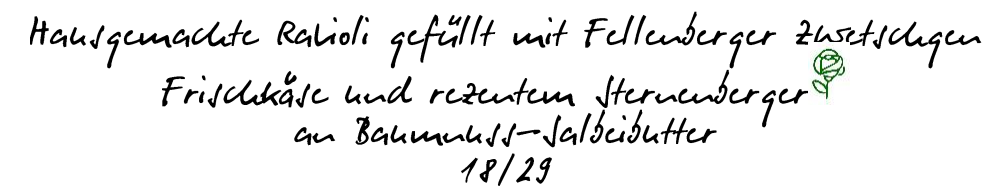 Hausgemachte Ravioli gefüllt mit Fellenberger Zwetschgen
Frischkäse und rezentem Sternenberger
an Baumnuss-Salbeibutter
18/29